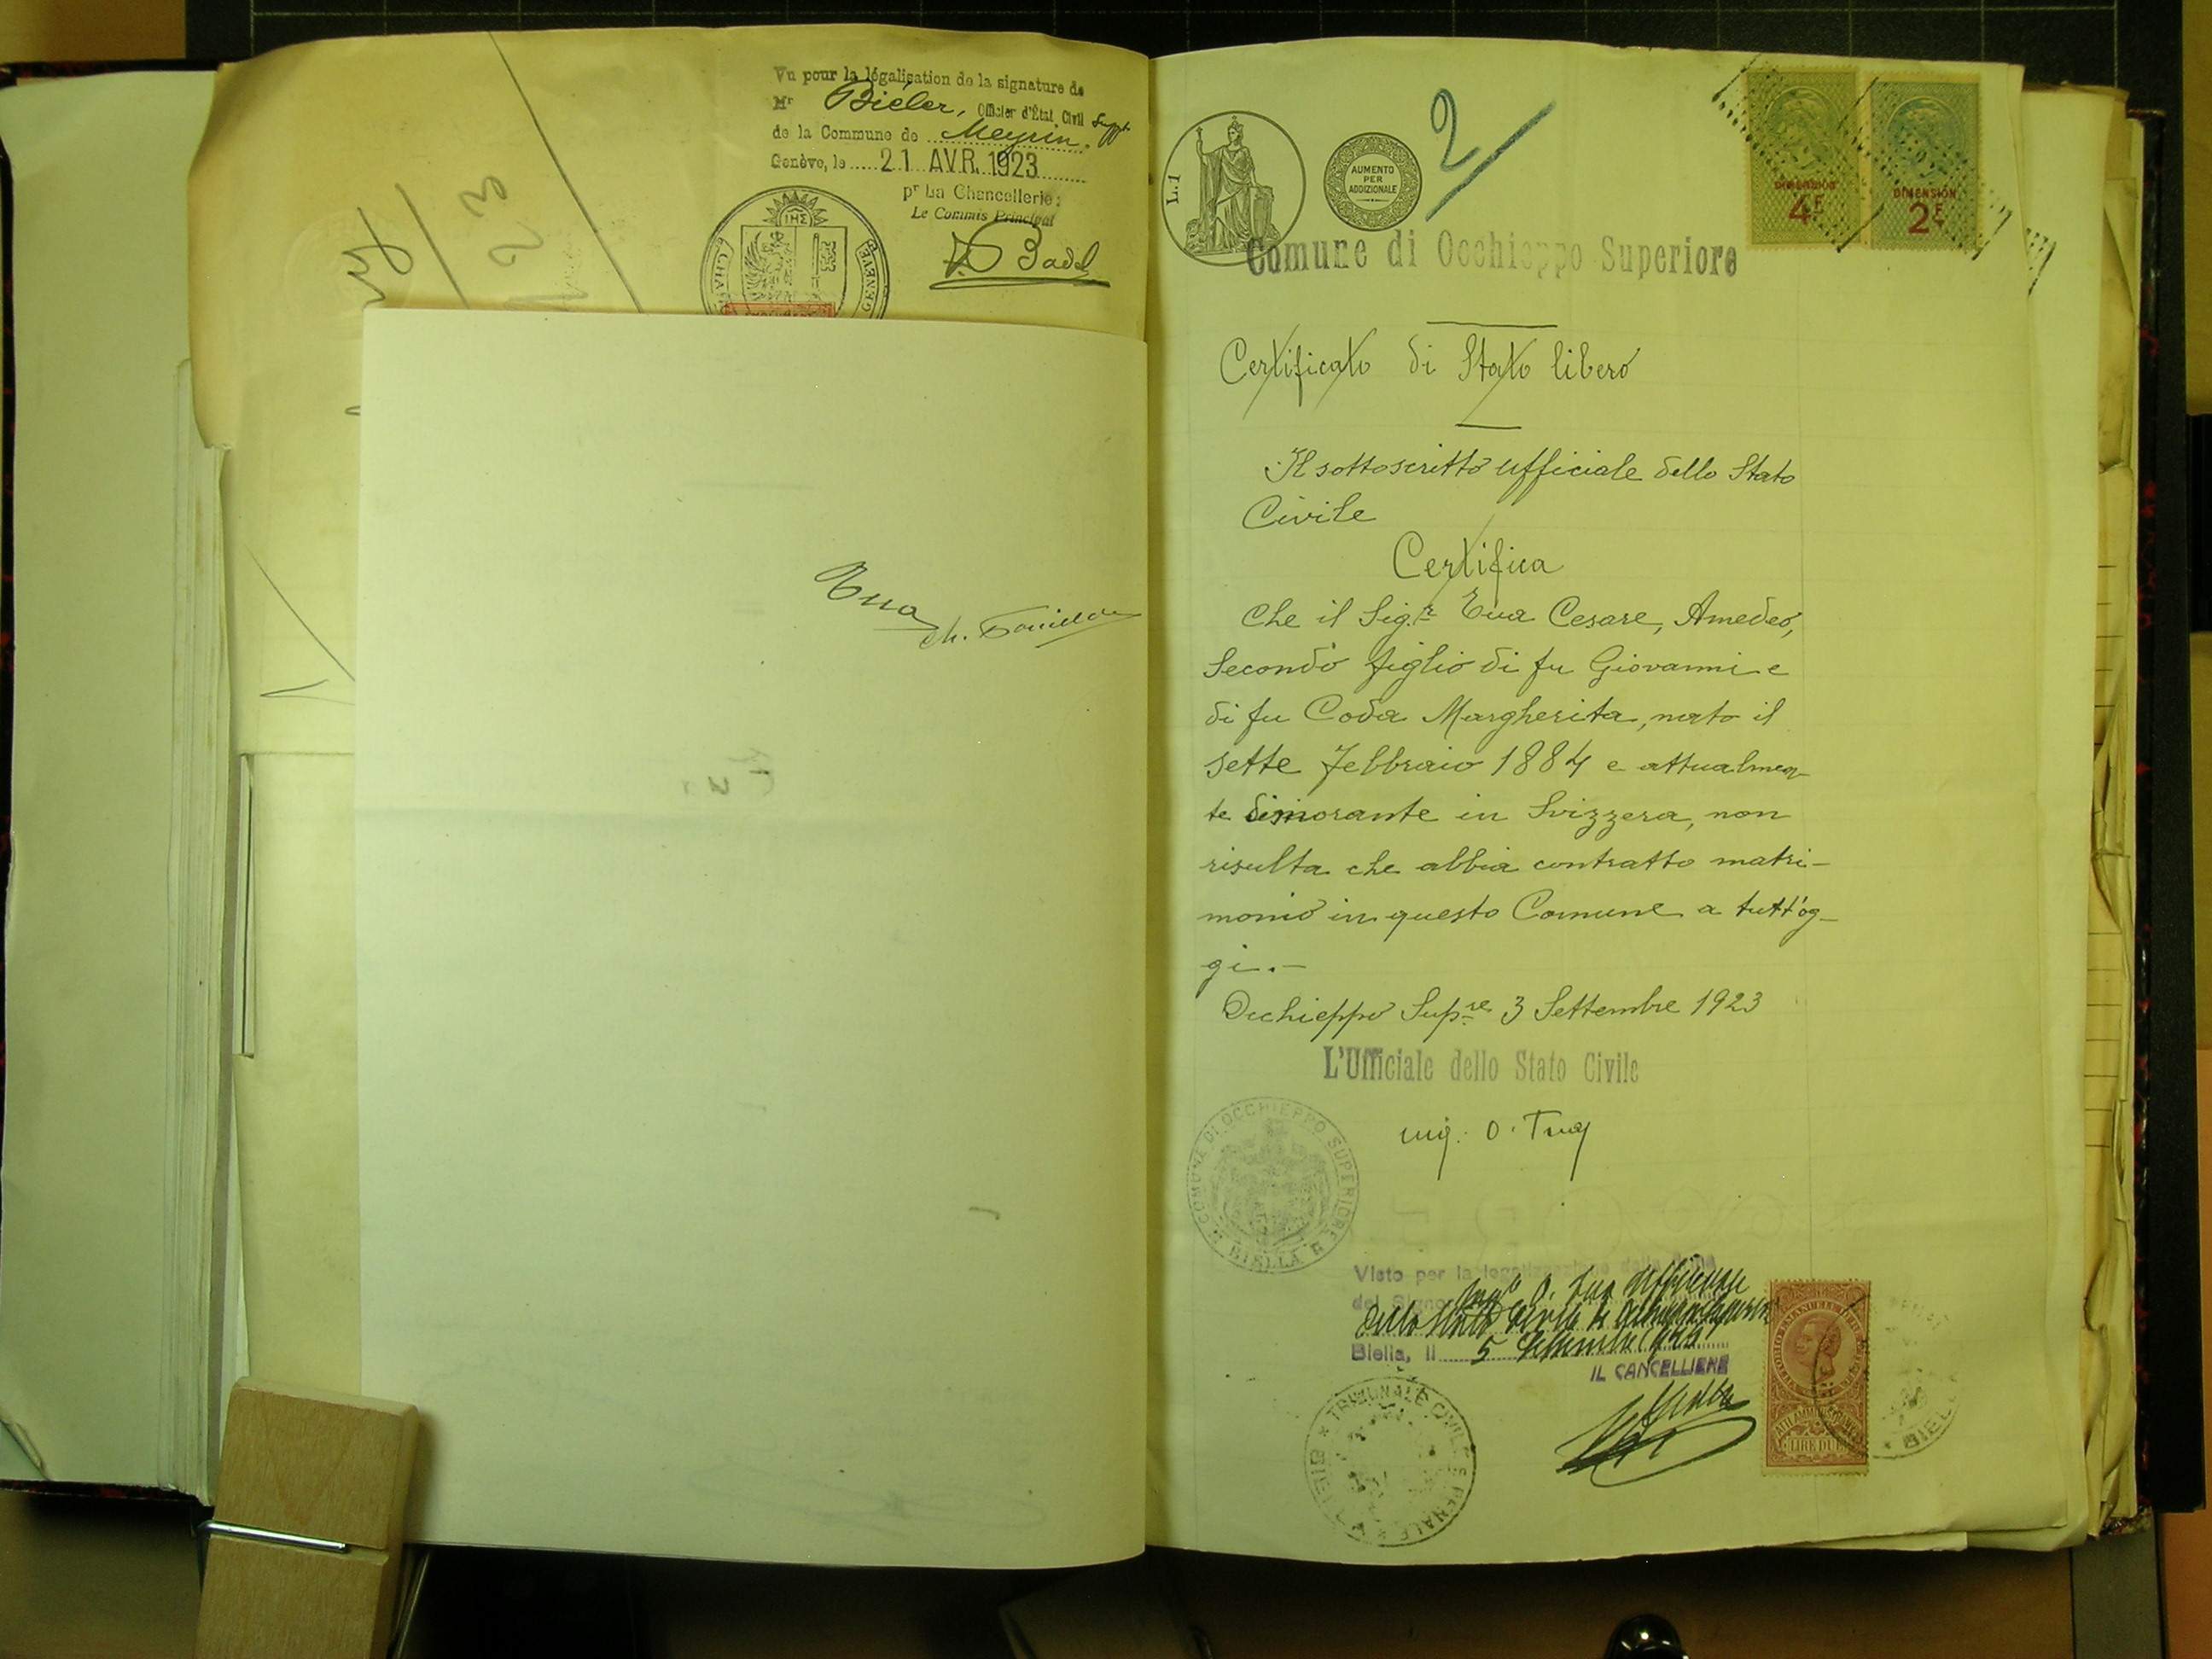 Vu pour la légalisation de la signature de
Mr Bieler, Officier d'État Civil Suppt
de la Commune de Meyrin.
Genève, le 21 AVR. 1923
pr La Chancellerie:
Le Commis Principal
Badel
IHS
GENEVE
Tua
L.1
AUMENTO
PER
ADDIZIONALE
2
DIMENSION
4F
DIMENSION
2F
Comune di Occhieppo Superiore
Certificato di Stato libero
Il sottoscritto ufficiale dello Stato
Civile
Certifica
Che il Sig.r Tua Cesare, Amedeo,
Secondo figlio di fu Giovanni e
di fu Coda Margherita, nato il
sette Febbraio 1884 e attualmen-
te dimorante in Svizzera, non
risulta che abbia contratto matri-
monio in questo Comune a tutt'og-
gi.-
Occhieppo Sup.re 3 Settembre 1923
L'Ufficiale dello Stato Civile
ing. O. Tua
COMUNE DI OCCHIEPPO SUPERIORE
BIELLA
Visto per la legalizzazione della firma
del Signor Ing. O. Tua Ufficiale
dello Stato Civile di
Biella, li 5 Settembre 1923
IL CANCELLIERE
TRIBUNALE CIVILE E PENALE
BIELLA
ATTI AMMINISTRATIVI
LIRE DUE
BIELLA